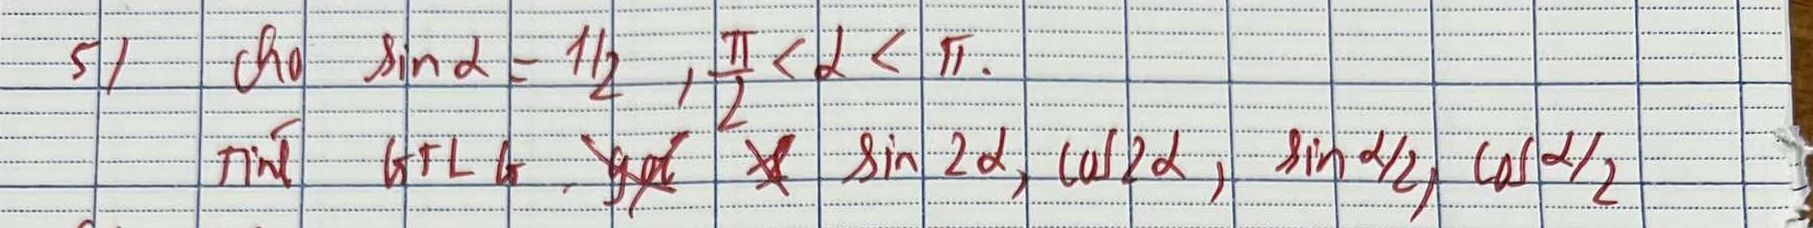 5/ Cho sin α = 1/2 , π/2 < α < π.
Tính GTLG sin 2α, cos 2α, sin α/2, cos α/2